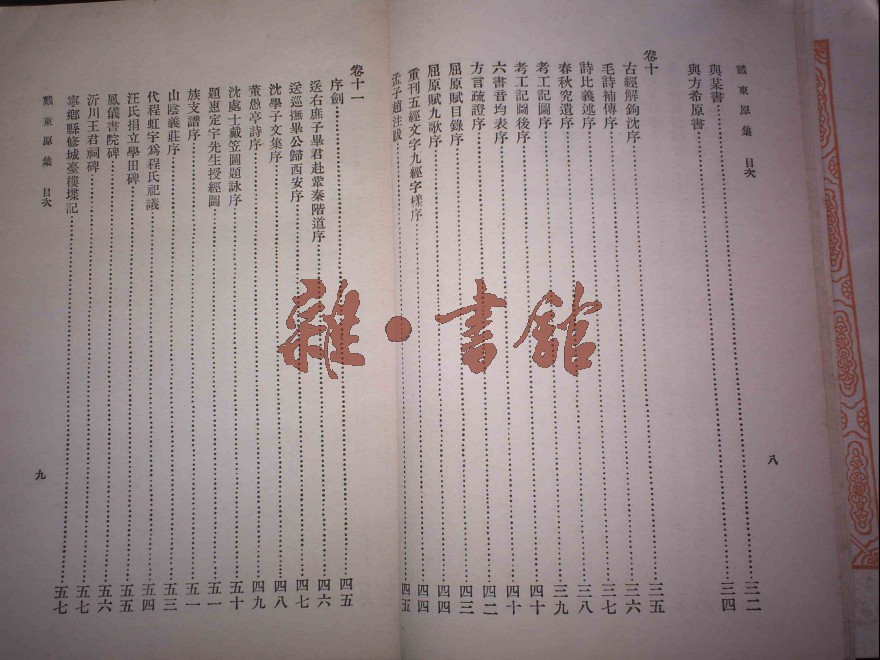 戴東原集 目次
與某書……三二
與方希原書……三四
卷十
古經解鉤沈序……三五
毛詩補傳序……三六
詩比義述序……三七
春秋究遺序……三八
考工記圖序……三九
考工記圖後序……四十
六書音均表序……四十
方言疏證序……四二
屈原賦目錄序……四三
屈原賦九歌序……四四
重刊五經文字九經字樣序……四四
孟子趙注跋……四五
八
卷十一
序劍……四五
送右庶子畢君赴鞏秦階道序……四六
送巡撫畢公歸西安序……四七
沈學子文集序……四八
董愚亭詩序……四九
沈處士戴笠圖題詠序……五十
題惠定宇先生授經圖……五一
族支譜序……五一
山陰義莊序……五三
代程虹宇為程氏祀議……五四
汪氏捐立學田碑……五五
鳳儀書院碑……五六
沂川王君祠碑……五七
寧鄉縣修城臺樓堞記……五七
戴東原集 目次
九
雜·書館